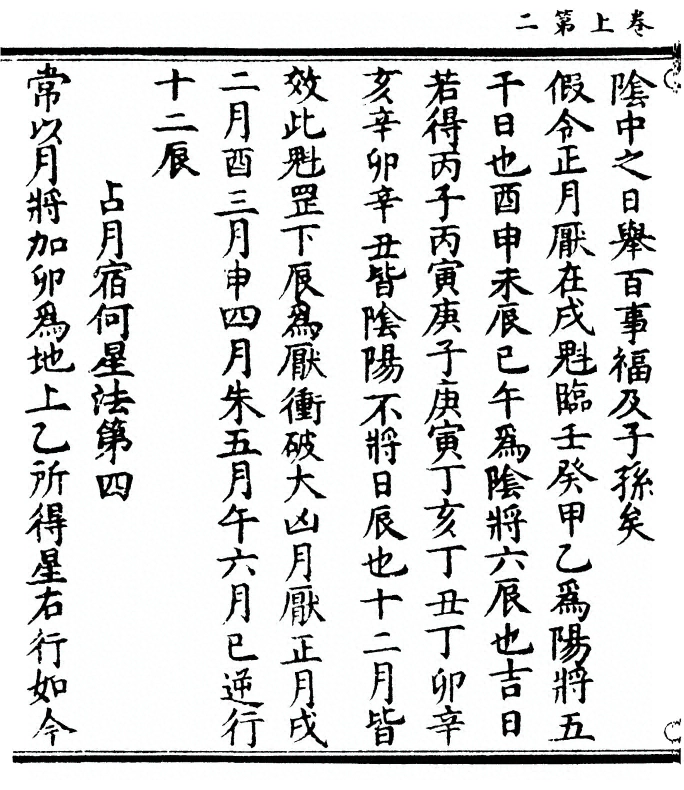 卷上第二
陰中之日舉百事福及子孫矣
假令正月厭在戌魁臨壬癸甲乙爲陽將五
干日也酉申未辰巳午爲陰將六辰也吉日
若得丙子丙寅庚子庚寅丁亥丁丑丁卯辛
亥辛卯辛丑皆陰陽不將日辰也十二月皆
效此魁罡下辰爲厭衝破大凶月厭正月戌
二月酉三月申四月朱五月午六月巳逆行
十二辰
占月宿何星法第四
常以月將加卯爲地上乙所得星右行如今